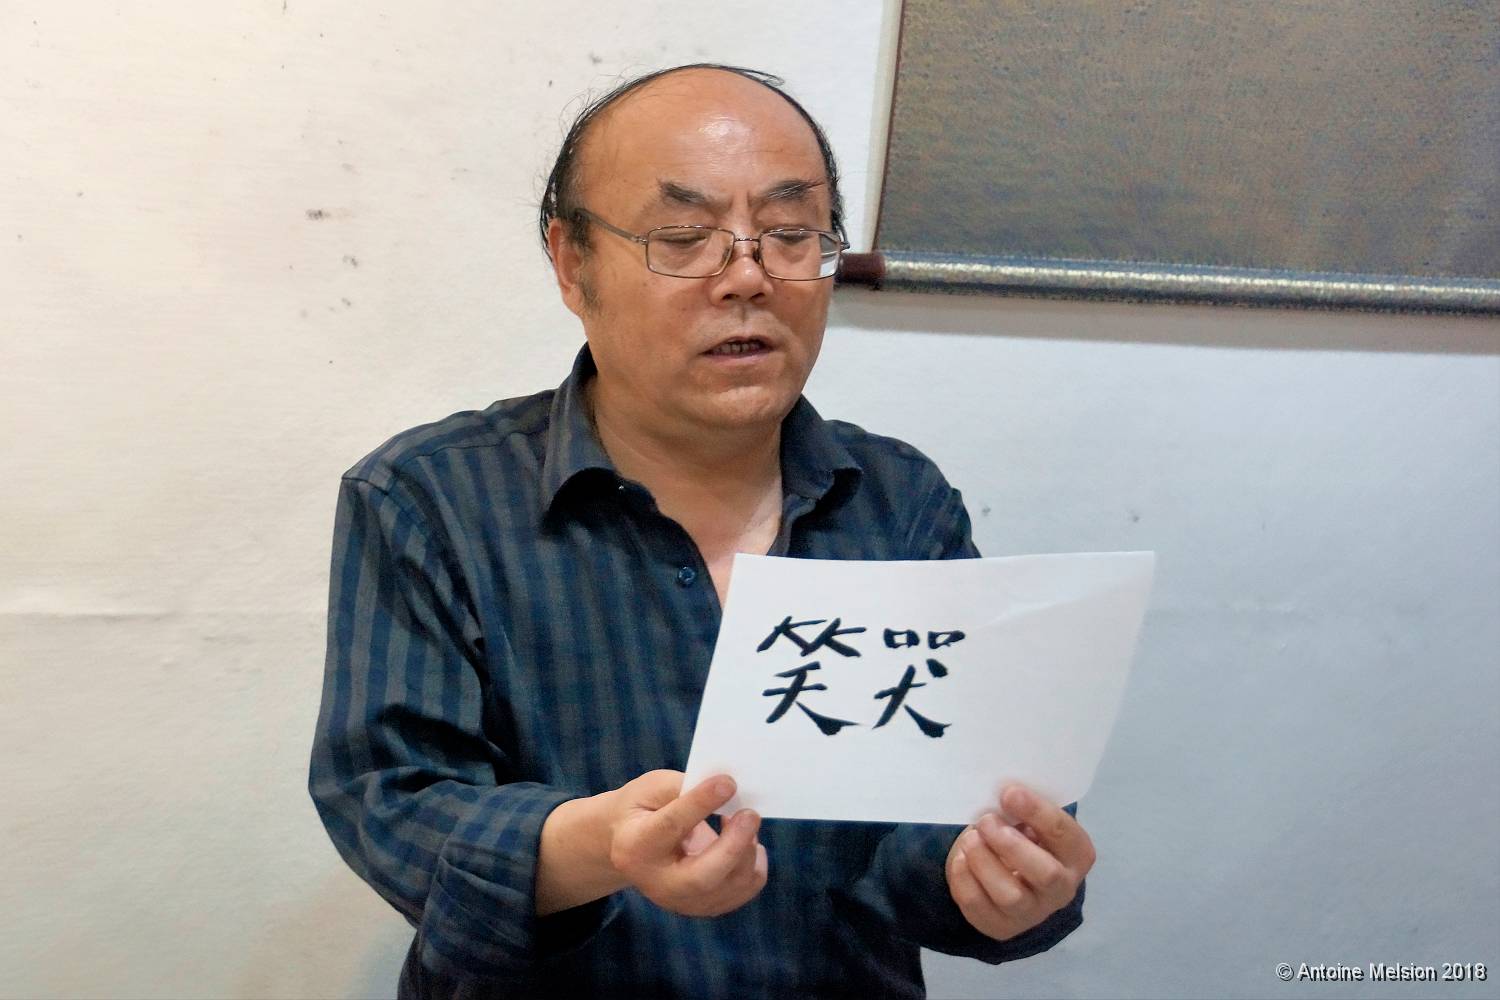 笑哭
© Antoine Melsion 2018